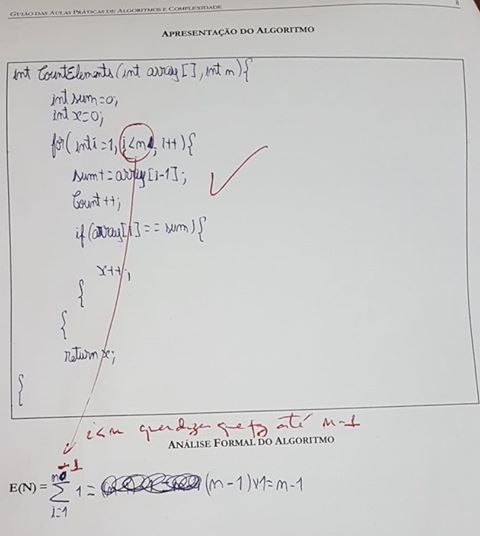 GUIÃO DAS AULAS PRÁTICAS DE ALGORITMOS E COMPLEXIDADE
APRESENTAÇÃO DO ALGORITMO
int CountElements (int array[], int n){
int sum=0;
int x=0;
for( int i=1; i<n; i++){
sum+=array[i-1];
Count++;
if(array[i]==sum){
x++;
{
{
return x;
{
i<n quer dizer que faz até n-1
ANÁLISE FORMAL DO ALGORITMO
n-1
E(N) = ∑ 1 = (n-1)x1=n-1
i=1